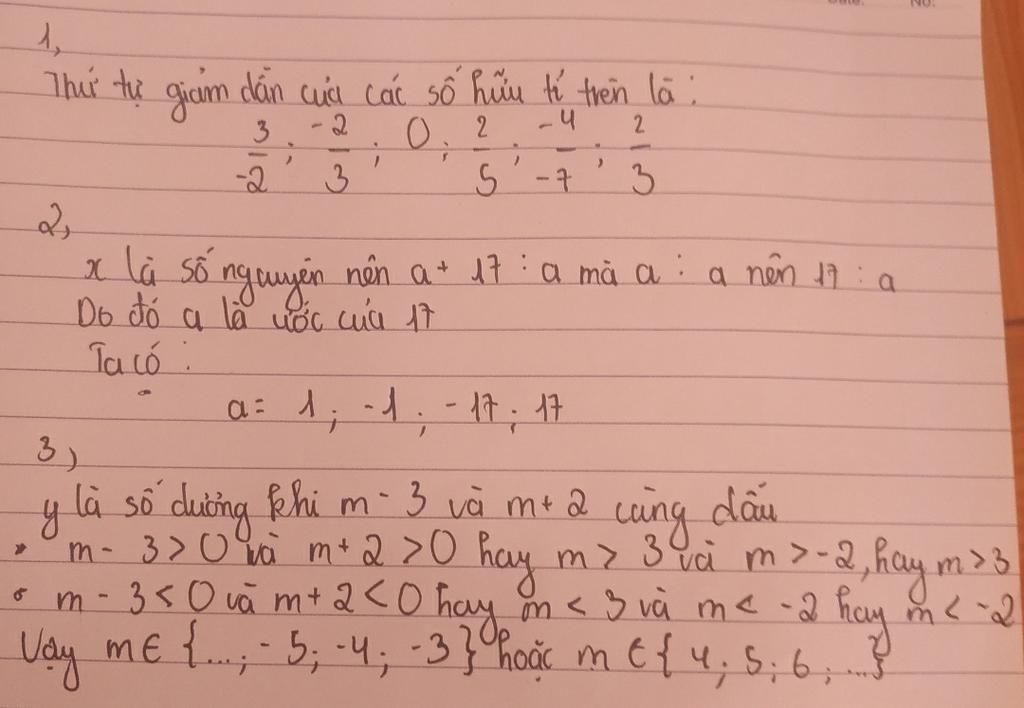 1,
Thứ tự giảm dần của các số hữu tỉ trên là:
3/-2 ; -2/3 ; 0 ; 2/5 ; -4/-7 ; 2/3
2,
x là số nguyên nên a + 17 ⋮ a mà a ⋮ a nên 17 ⋮ a
Do đó a là ước của 17
Ta có :
a = 1 ; -1 ; -17 ; 17
3)
y là số dương khi m - 3 và m + 2 cùng dấu
• m - 3 > 0 và m + 2 > 0 hay m > 3 và m > -2, hay m > 3
• m - 3 < 0 và m + 2 < 0 hay m < 3 và m < -2 hay m < -2
Vậy m ∈ {...; -5; -4; -3} hoặc m ∈ {4; 5; 6; ...}